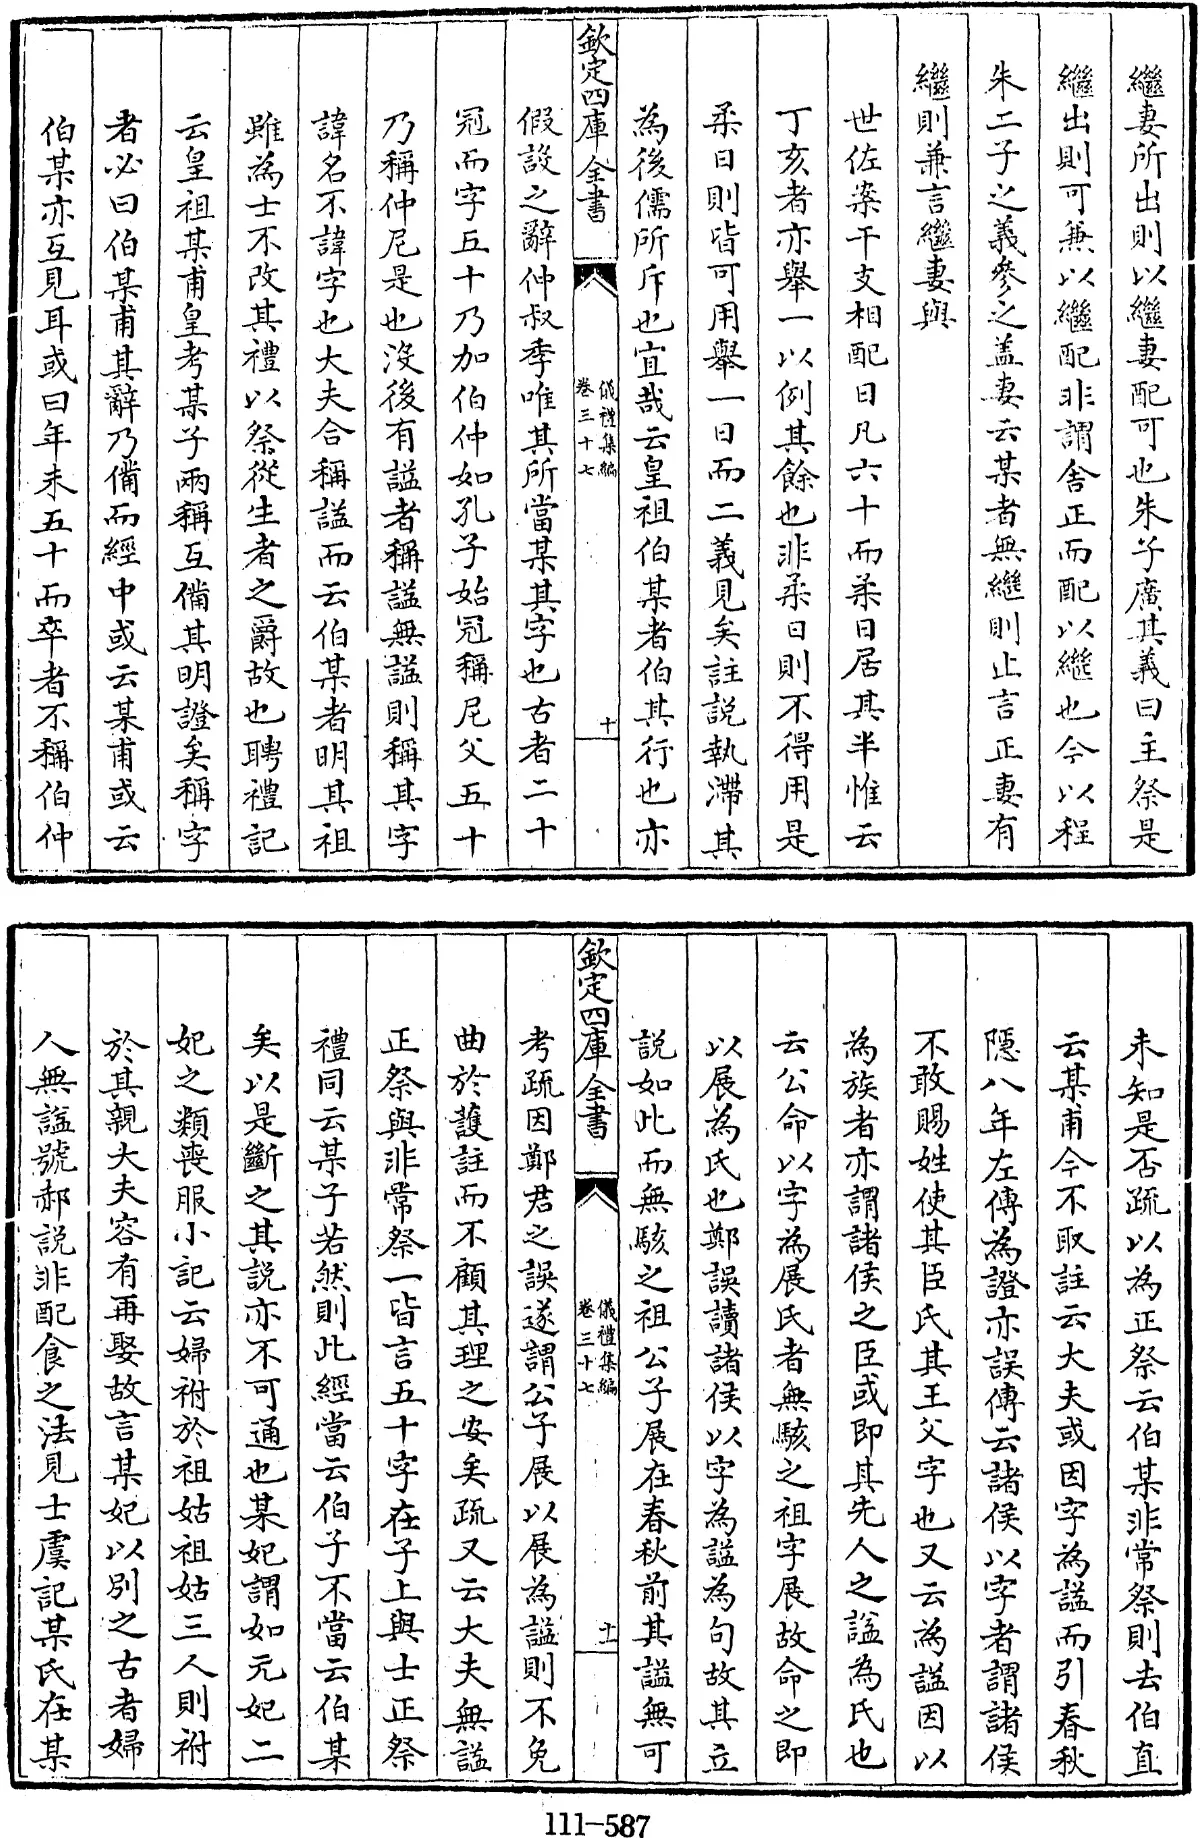 繼妻所出則以繼妻配可也朱子廣其義曰主祭是
繼出則可兼以繼配非謂舍正而配以繼也今以程
朱二子之義參之盖妻云某者無繼則止言正妻有
繼則兼言繼妻與
世佐案干支相配日凡六十而柔日居其半惟云
丁亥者亦舉一以例其餘也非柔日則不得用是
柔日則皆可用舉一日而二義見矣註説執滯其
為後儒所斥也宜哉云皇祖伯某者伯其行也亦
欽定四庫全書
儀禮集編
卷三十七
十
假設之辭仲叔季唯其所當某其字也古者二十
冠而字五十乃加伯仲如孔子始冠稱尼父五十
乃稱仲尼是也沒後有諡者稱諡無諡則稱其字
諱名不諱字也大夫合稱諡而云伯某者明其祖
雖為士不改其禮以祭從生者之爵故也聘禮記
云皇祖某甫皇考某子兩稱互備其明證矣稱字
者必曰伯某甫其辭乃備而經中或云某甫或云
伯某亦互見耳或曰年未五十而卒者不稱伯仲
未知是否疏以為正祭云伯某非常祭則去伯直
云某甫今不取註云大夫或因字為諡而引春秋
隱八年左傳為證亦誤傳云諸侯以字者謂諸侯
不敢賜姓使其臣氏其王父字也又云為諡因以
為族者亦謂諸侯之臣或即其先人之諡為氏也
云公命以字為展氏者無駭之祖字展故命之即
以展為氏也鄭誤讀諸侯以字為諡為句故其立
説如此而無駭之祖公子展在春秋前其諡無可
欽定四庫全書
儀禮集編
卷三十七
十一
考疏因鄭君之誤遂謂公子展以展為諡則不免
曲於護註而不顧其理之安矣疏又云大夫無諡
正祭與非常祭一皆言五十字在子上與士正祭
禮同云某子若然則此經當云伯子不當云伯某
矣以是斷之其説亦不可通也某妃謂如元妃二
妃之類喪服小記云婦祔於祖姑祖姑三人則祔
於其親大夫容有再娶故言某妃以別之古者婦
人無諡號郝説非配食之法見士虞記某氏在某
111-587